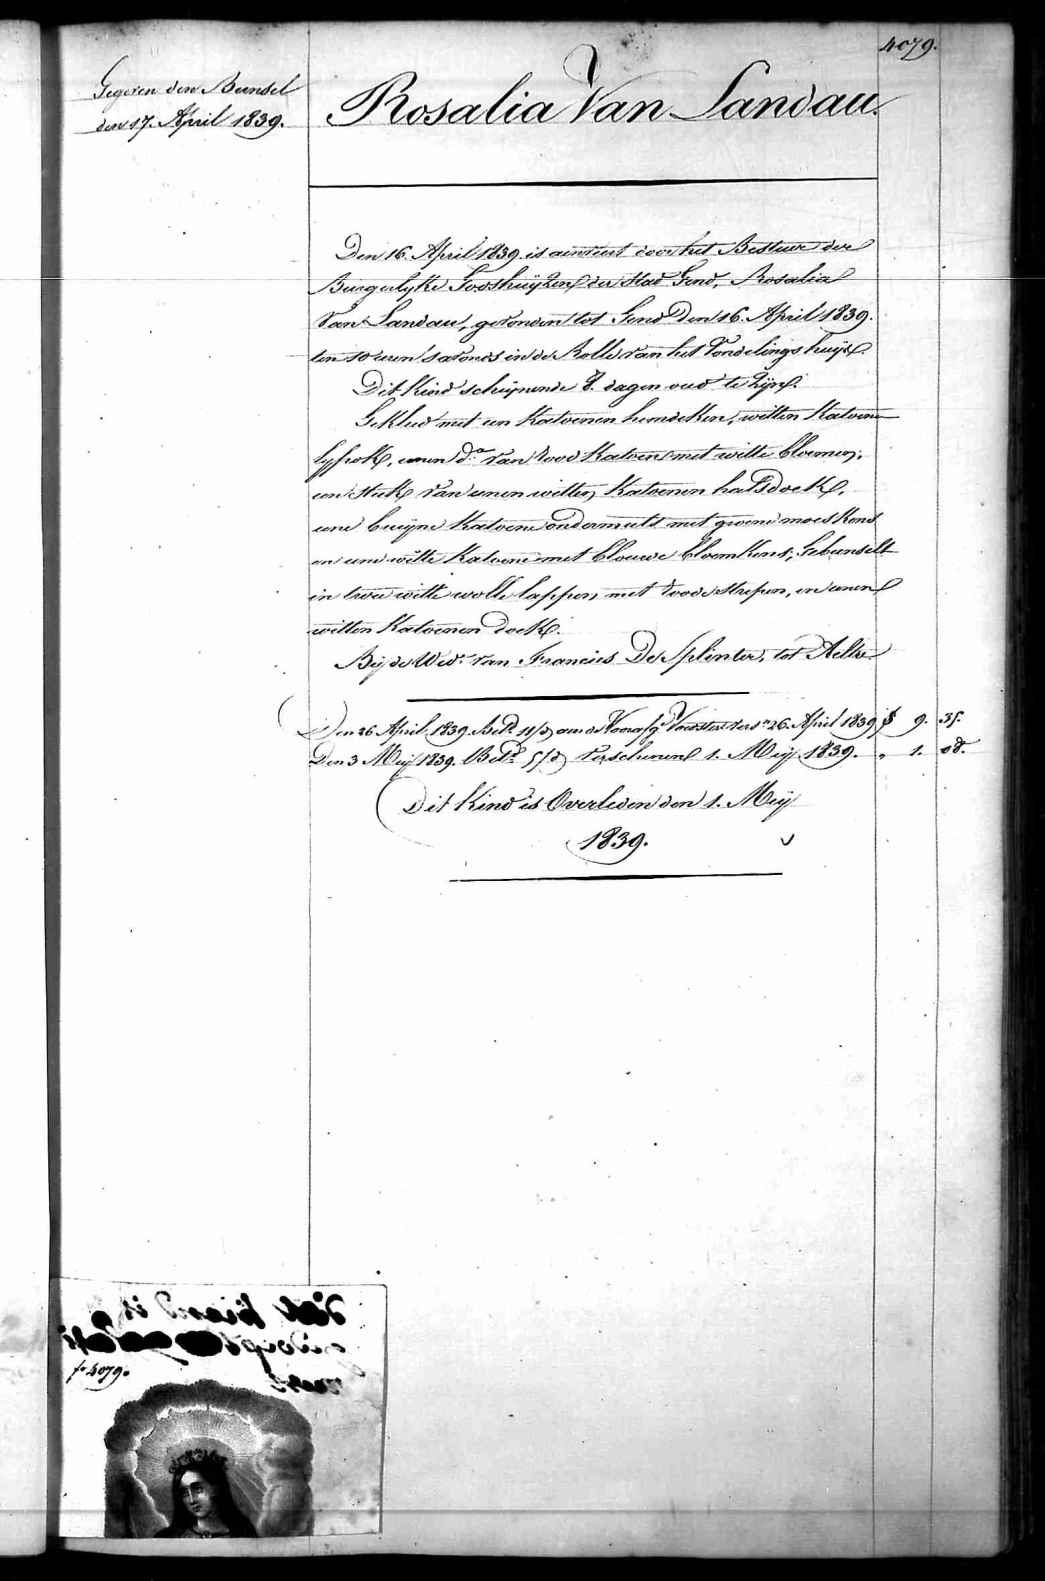 4079.
Gegeven den Bundsel
den 17. April 1839.
Rosalia Van Landau.
Den 16. April 1839 is aenveert door het Bestuur der
Burgerlyke Godshuyzen der Stad Gend, Rosalia
Van Landau, gevonden tot Gend Den 16. April 1839.
ten 10 uren s'avonds in de Rolle van het Vondelings huys.
Dit Kind schynende 8. dagen oud te Zyn.
Gekleed met een Katoenen hemdeken, witten Katoenen
lyfrok, eenen do. van rood Katoen met witte bloemen,
een stuk van eenen witten Katoenen halsdoek,
eene bruyne Katoene ondermuts met groene moeskens
en eene witte Katoene met blouwe bloemkens; Gebunselt
in twee witte wolle lappen, met roode strepen, en eenen
witten Katoenen doek.
By de Wede. van Francies De Splenter, tot Aeltre
Den 26 April 1839 Betd. 11/3 Versn. 26. April 1839 9. 35.
Den 3 Mey 1839. Betd. 5/3 Verschenen 1. Mey 1839. " 1. 08.
Dit Kind is Overleden den 1. Mey
1839.
Dit kiend is
fo. 4079.